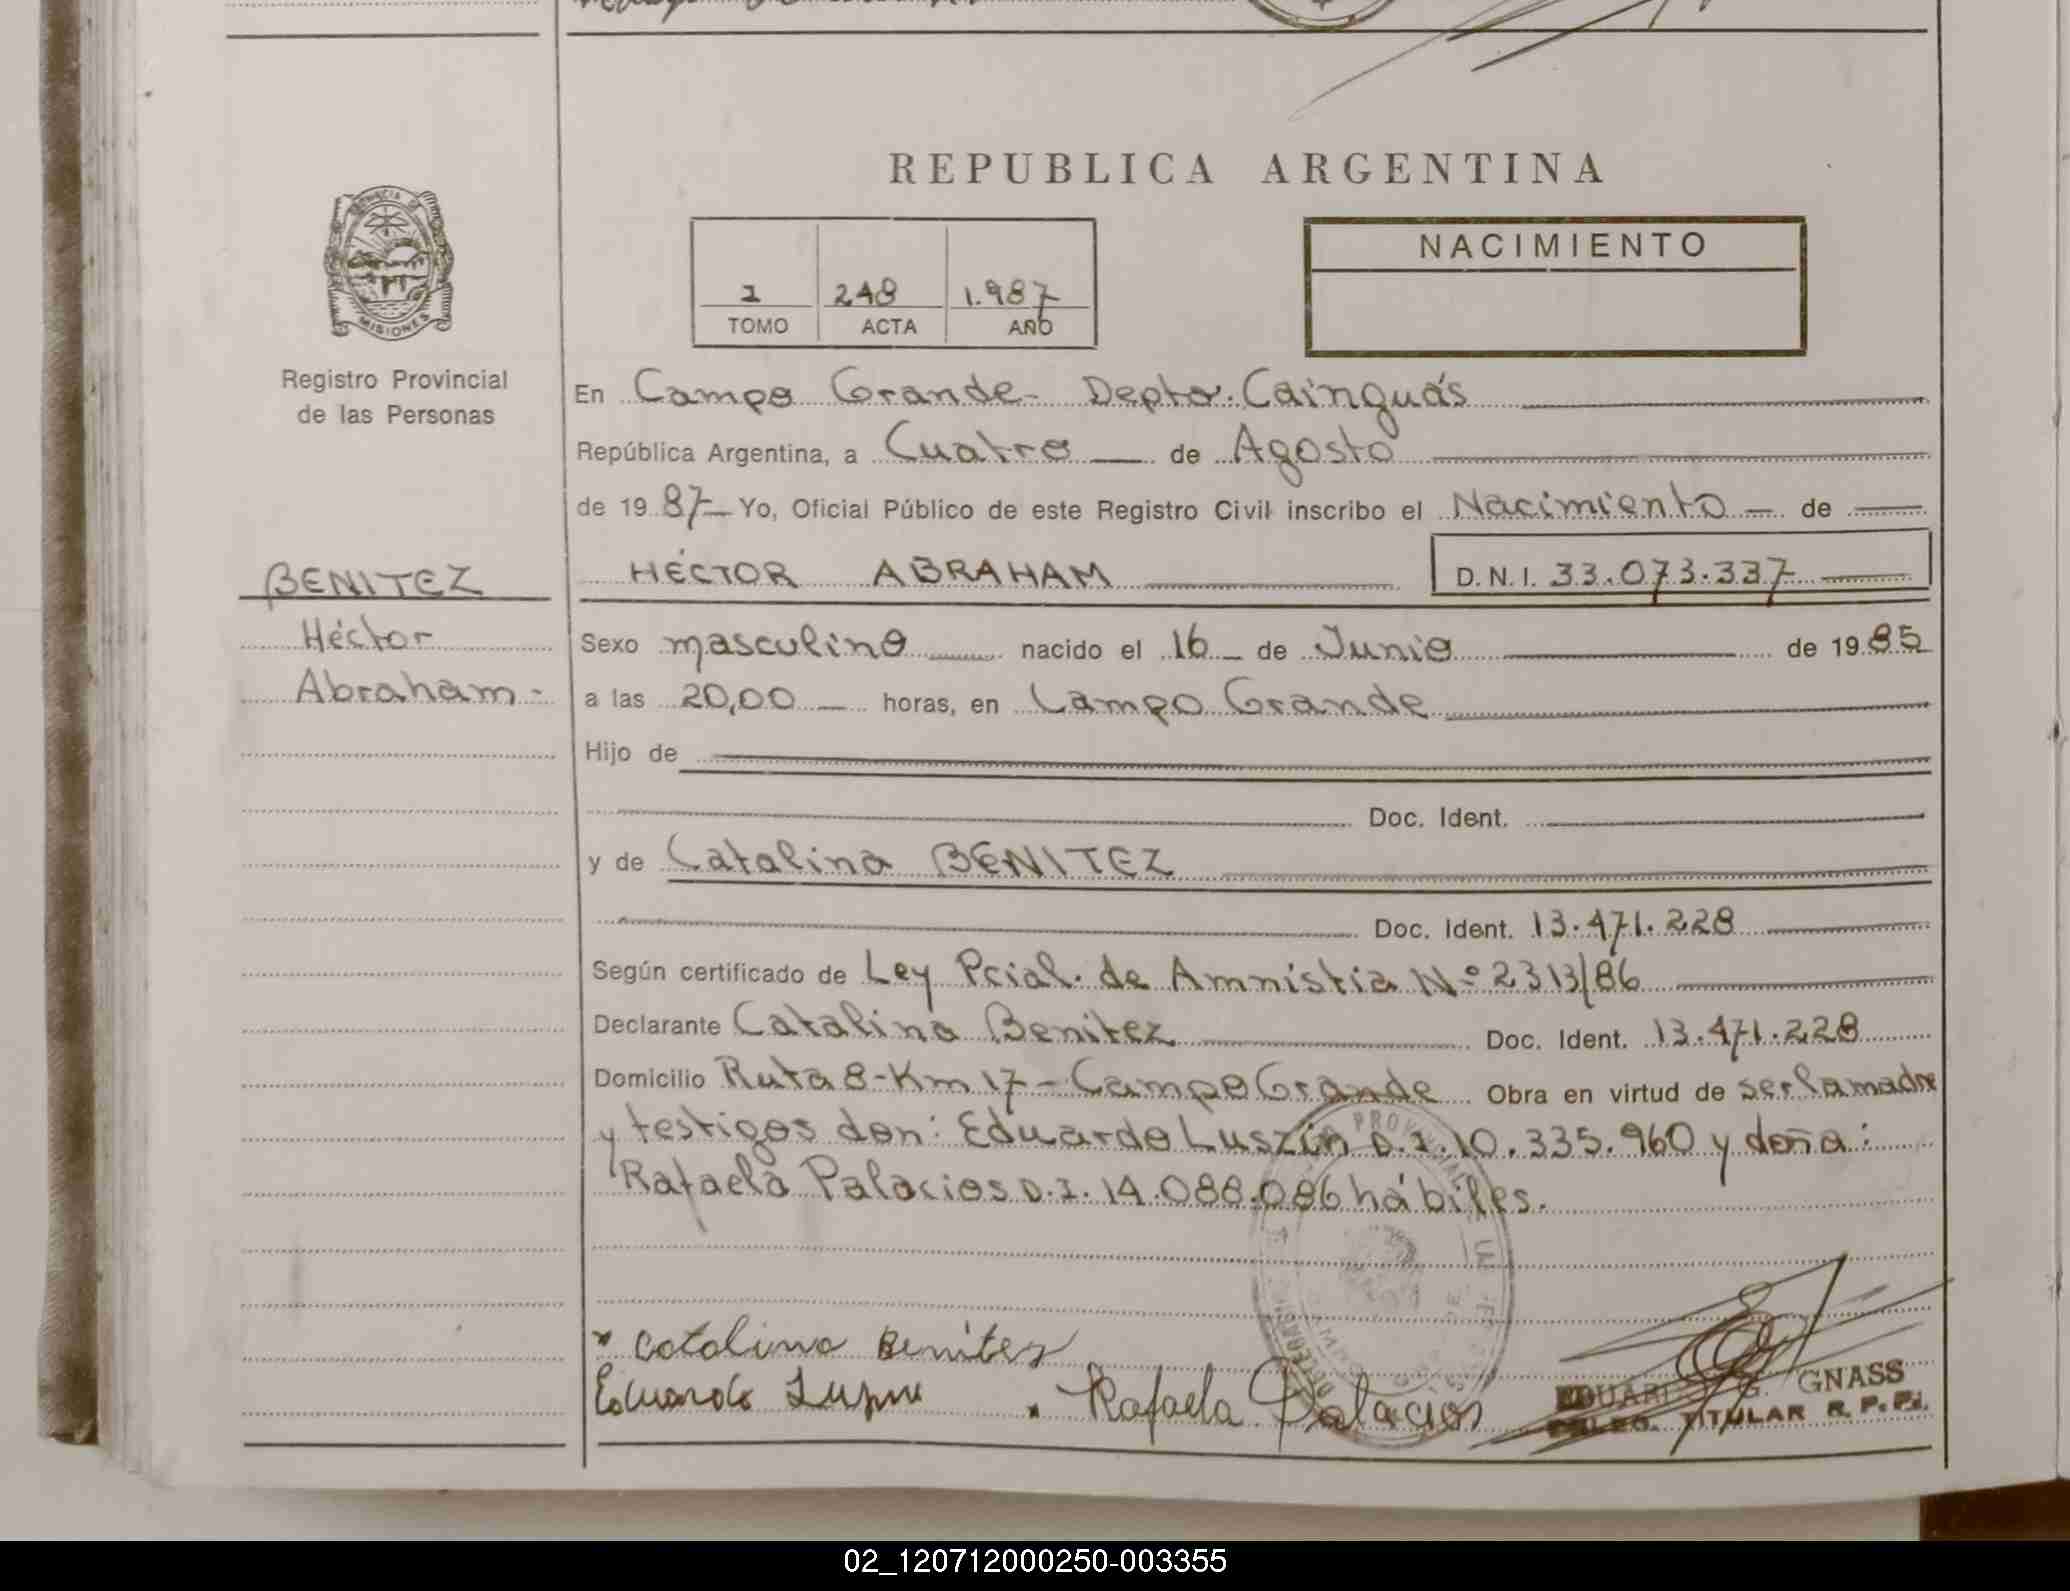 REPUBLICA ARGENTINA
NACIMIENTO
248 1.987
TOMO ACTA AÑO
PROVINCIA DE
MISIONES
Registro Provincial
de las Personas
En Campo Grande - Depto. Cainguás
República Argentina, a Cuatro — de Agosto
de 19 87 — Yo, Oficial Público de este Registro Civil inscribo el Nacimiento — de
BENITEZ
Héctor
Abraham.-
HÉCTOR ABRAHAM D.N.I. 33.073.337
Sexo masculino nacido el 16 — de Junio de 19 85
a las 20,00 — horas, en Campo Grande
Hijo de
Doc. Ident.
y de Catalina BENITEZ
Doc. Ident. 13.471.228
Según certificado de Ley Pcial. de Amnistia Nº 2313/86
Declarante Catalina Benitez Doc. Ident. 13.471.228
Domicilio Ruta 8 - Km 17 - Campo Grande Obra en virtud de ser la madre
y testigos don: Eduardo Luszin D.I. 10.335.960 y doña:
Rafaela Palacios D.I. 14.088.086 hábiles.
Catalina Benitez
Eduardo Rafaela Palacios
GNASS
TITULAR R.P.P.
02_120712000250-003355